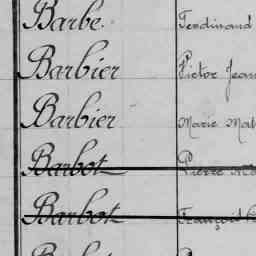 Barbe. Ferdinand
Barbier Victor Jean
Barbier Marie
Barbot Pierre
Barbot François